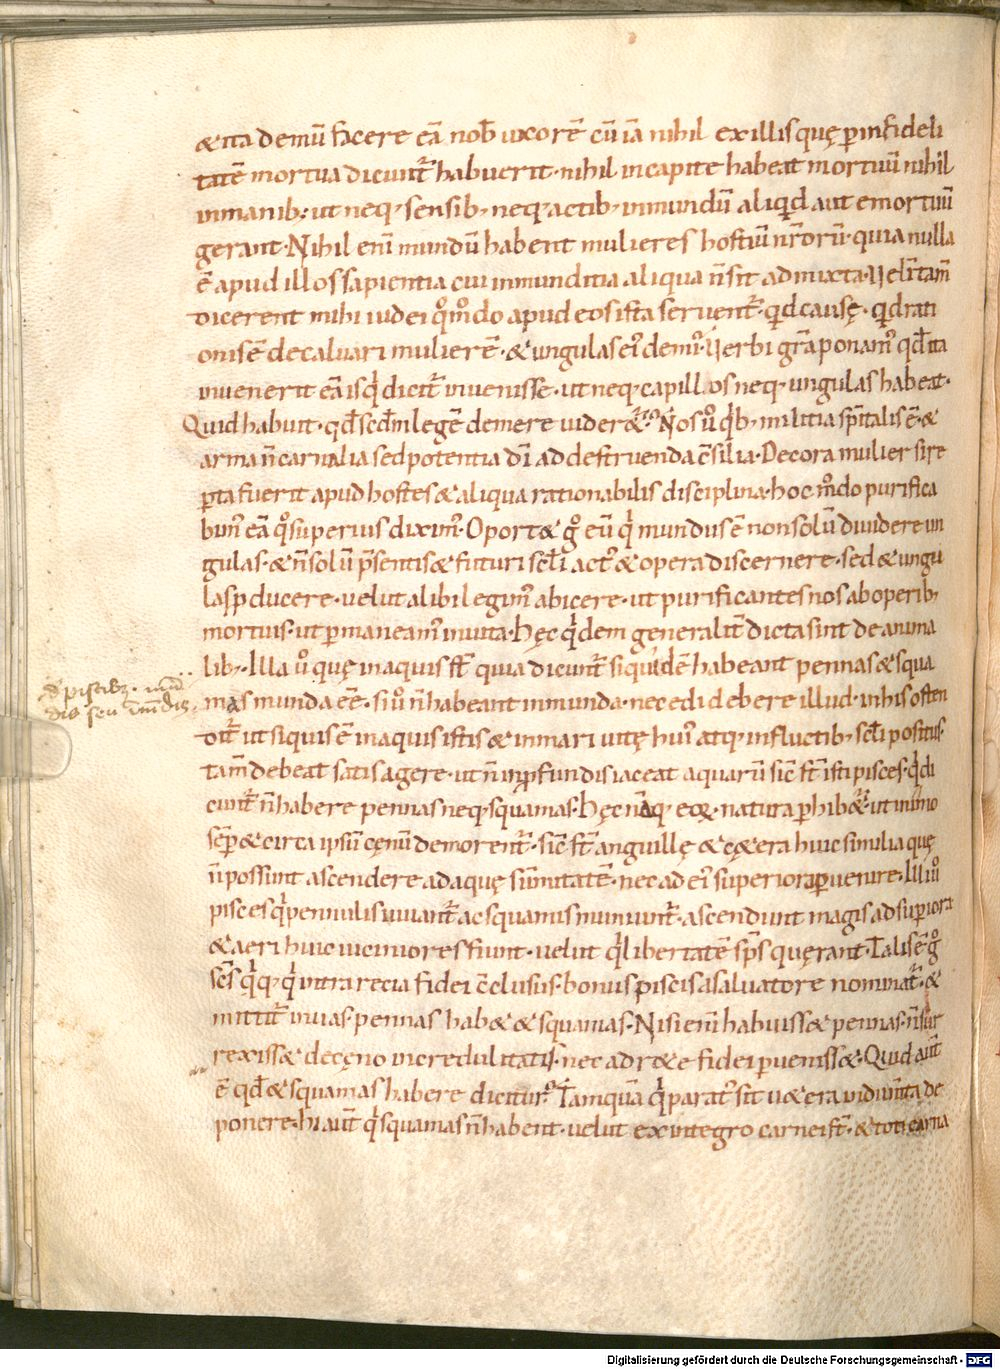 &ita demū facere eā nob̄ uxorē cū iā nihil ex illis quę ꝑ infideli
tatē mortua dicunt̄ habuerit · nihil in capite habeat mortuū nihil
in manib; ut neq; sensib; neq; actib; inmundū aliqid aut emortuū
gerant · Nihil enī mundū habent mulieres hostiū nr̄orū · quia nulla
ē apud illos sapientia cui inmunditia aliqua n̄ sit admixta · Uel̄ tam̄
dicerent mihi iudei qͦm̊do apud eos ista seruent̄ · qid causę · qid rati
onis ē decaluari mulierē · & ungulas ei᾽ demi᾽ · Uerbi gr̄a ponam᾽ qd̄ ita
inuenerit eā is qi dicit̄ inuenisse · ut neq; capillos neq; ungulas habeat ·
Quid habuit · qd̄ scd̄m legē demere uider&̄ · Nos ů qib; militia sp̄italis ē · &
arma n̄ carnalia sed potentia dī ad destruenda c̄silia · Decora mulier si re
ꝑta fuerit apud hostes & aliqua rationabilis disciplina · hoc m̊do purifica
bim᾽ eā qͦ superius dixim᾽ · Oport& gͦ eū qi mundus ē non solū diuidere un
gulas · & n̄ solū p̄sentis & futuri scl̄i act᾽ & opera discernere · sed & ungu
las ꝓducere · uel ut alibi legim᾽ abicere · ut purificantes nos ab operib;
mortuis · ut ꝑmaneam᾽ in uita · Hęc qidem generalit̄ dicta sint de anima
lib; · Illa ů quę in aquis st̄ quia dicunt̄ siquidē habeant pennas & squa
mas munda eē · si ů n̄ habeant inmunda · nec edi debere illud · in his osten
dit̄ ut siquis ē in aquis istis & in mari uitę hui᾽ atq; in fluctib; scl̄i positus ·
tam̄ debeat satis agere · ut n̄ in ꝓfundis iaceat aquarū sic̄ st̄ isti pisces · qi di
cunt̄ n̄ habere pennas neq; squamas · Hęc nāq; eoꝝ natura ꝑhib&̄ · ut in imo
sēꝑ & circa ipsū cęnū demorent̄ · sic̄ st̄ anguillę & c&era huic similia quę
n̄ possunt ascendere ad aquę sūmitatē · nec ad ei᾽ superiora ꝑuenire · Illi ů
pisces qi pennulis iuuant̄ ac squamis muniunt̄ · ascendunt magis ad suꝑiora
& aeri huic uiciniores fiunt · uel ut qi libertatē sp̄s quęrant · Talis ē gͦ
sc̄s qisq; qi intra recia fidei c̄clusus · bonus piscis a saluatore nominat̄ · &
mittit̄ in uas · pennas hab& & squamas · Nisi enī habuiss& pennas · n̄ sur
rexiss& de cęno incredulitatis · nec ad r&e fidei ꝑueniss& · Quid aut̄
ē qd̄ & squamas habere dicitur · Tamquā qi parat᾽ sit u&era indum̄ta de
ponere · hi aut̄ qi squamas n̄ habent · uel ut ex integro carnei st̄ · & toti carna